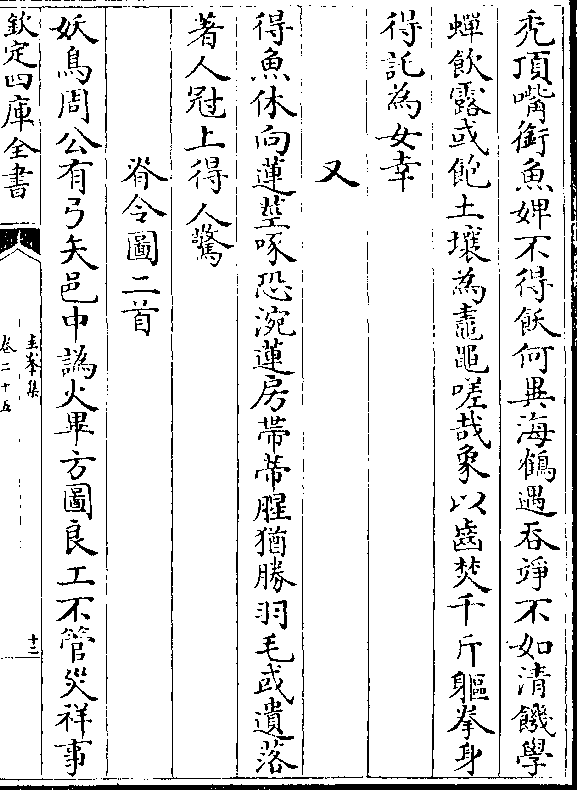 禿頂嘴銜魚婢不得飫何異海鶴遇吞竫不如清饑學
蟬飲露或飽土壤為鼃黽嗟哉象以齒焚千斤軀拳身
得託為女幸
又
得魚休向蓮莖啄恐涴蓮房蔕蔕腥猶勝羽毛或遺落
著人冠上得人驚
脊令圖二首
妖鳥周公有弓矢邑中譌火畢方圖良工不管災祥事
欽定四庫全書
圭峯集
卷二十五
十二